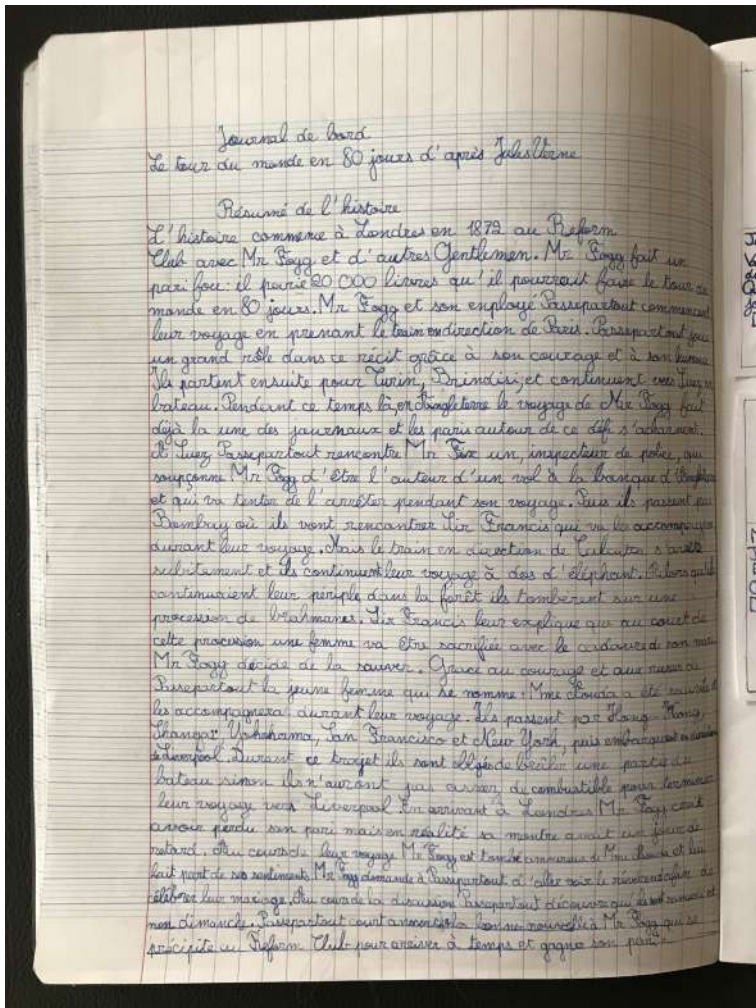 Journal de bord
Le tour du monde en 80 jours d'après Jules Verne
Résumé de l'histoire
L'histoire commence à Londres en 1872 au Reform
Club avec Mr Fogg et d'autres Gentlemen. Mr Fogg fait un
pari fou: il parie 20 000 livres qu'il pourrait faire le tour du
monde en 80 jours. Mr Fogg et son employé Passepartout commencent
leur voyage en prenant le train en direction de Paris. Passepartout joue
un grand rôle dans ce récit grâce à son courage et à son humour
Ils partent ensuite pour Turin, Brindisi, et continuent vers Suez en
bateau. Pendant ce temps là, en Angleterre le voyage de Mr Fogg fait
déjà la une des journaux et les paris autour de ce défi s'acharnent.
A Suez Passepartout rencontre Mr Fix un, inspecteur de police, qui
soupçonne Mr Fogg d'être l'auteur d'un vol à la banque d'Angleterre
et qui va tenter de l'arrêter pendant son voyage. Puis ils passent par
Bombay où ils vont rencontrer Sir Francis qui va les accompagner
durant leur voyage. Mais le train en direction de Calcutta s'arrête
subitement et ils continuent leur voyage à dos d'éléphant. Alors qu'ils
continuaient leur périple dans la forêt ils tomberent sur une
procession de brahmanes. Sir Francis leur explique que au court de
cette procession une femme va être sacrifiée avec le cadavre de son mari
Mr Fogg décide de la sauver. Grace au courage et aux ruses de
Passepartout la jeune femme qui se nomme Mme Aouda a été sauvée
les accompagnera durant leur voyage. Ils passent par Hong-Kong,
Shangaï Yokohama, San Francisco et New York, puis embarquent en direction
de Liverpool. Durant ce trajet ils sont obligés de brûler une partie du
bateau sinon ils n'auront pas assez de combustible pour terminer
leur voyage vers Liverpool. En arrivant à Londres Mr Fogg croit
avoir perdu son pari mais en réalité sa montre avait un jour de
retard. Au cours de leur voyage Mr Fogg est tombé amoureux de Mme Aouda et lui
fait part de ses sentiments. Mr Fogg demande à Passepartout d'aller voir le révérend afin de
célébrer leur mariage. Au cour de la discussion Passepartout découvre qu'ils sont samedi et
non dimanche. Passepartout court annoncer la bonne nouvelle à Mr Fogg qui se
précipite au Reform Club pour arriver à temps et gagne son pari.